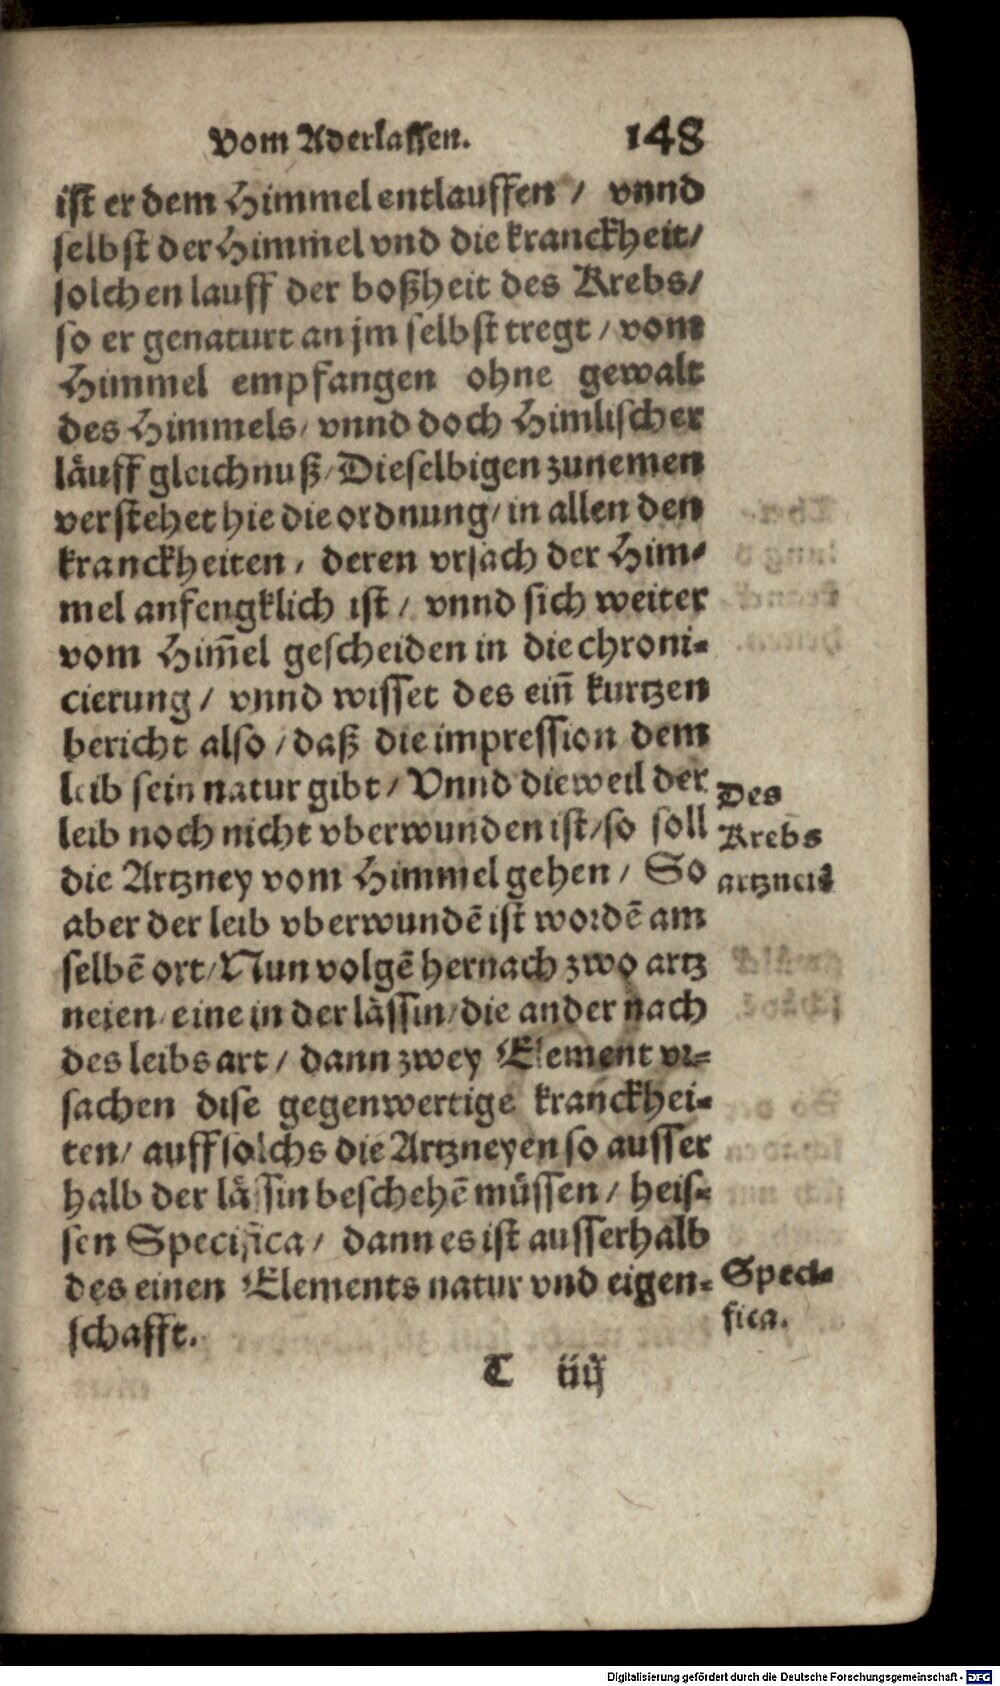 Vom Aderlassen. 148
ist er dem Himmel entlauffen / vnnd
selbst der Himmel vnd die kranckheit /
solchen lauff der boßheit des Krebs /
so er genaturt an jm selbst tregt / vom
Himmel empfangen ohne gewalt
des Himmels / vnnd doch Himlischer
läuff gleichnuß / Dieselbigen zunemen
verstehet hie die ordnung / in allen den
kranckheiten / deren vrsach der Him-
mel anfengklich ist / vnnd sich weiter
vom Him̄el gescheiden in die chroni-
cierung / vnnd wisset des ein̄ kurtzen
bericht also / daß die impression dem
leib sein natur gibt / Vnnd dieweil der
leib noch nicht vberwunden ist / so soll
die Artzney vom Himmel gehen / So
aber der leib vberwundē ist wordē am
selbē ort / Nun volgē hernach zwo artz
neien / eine in der lässin / die ander nach
des leibs art / dann zwey Element vr-
sachen dise gegenwertige kranckhei-
ten / auff solchs die Artzneyen so ausser
halb der lässin beschehē müssen / heis-
sen Specifica / dann es ist ausserhalb
des einen Elements natur vnd eigen-
schafft.
Des
Krebs
artznei
Speci-
fica.
T iiij
Digitalisierung gefördert durch die Deutsche Forschungsgemeinschaft - DFG